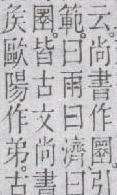 云。尚書作圛。引
範。曰雨曰濟曰
圛。皆古文尚書
矦歐陽作弟。古